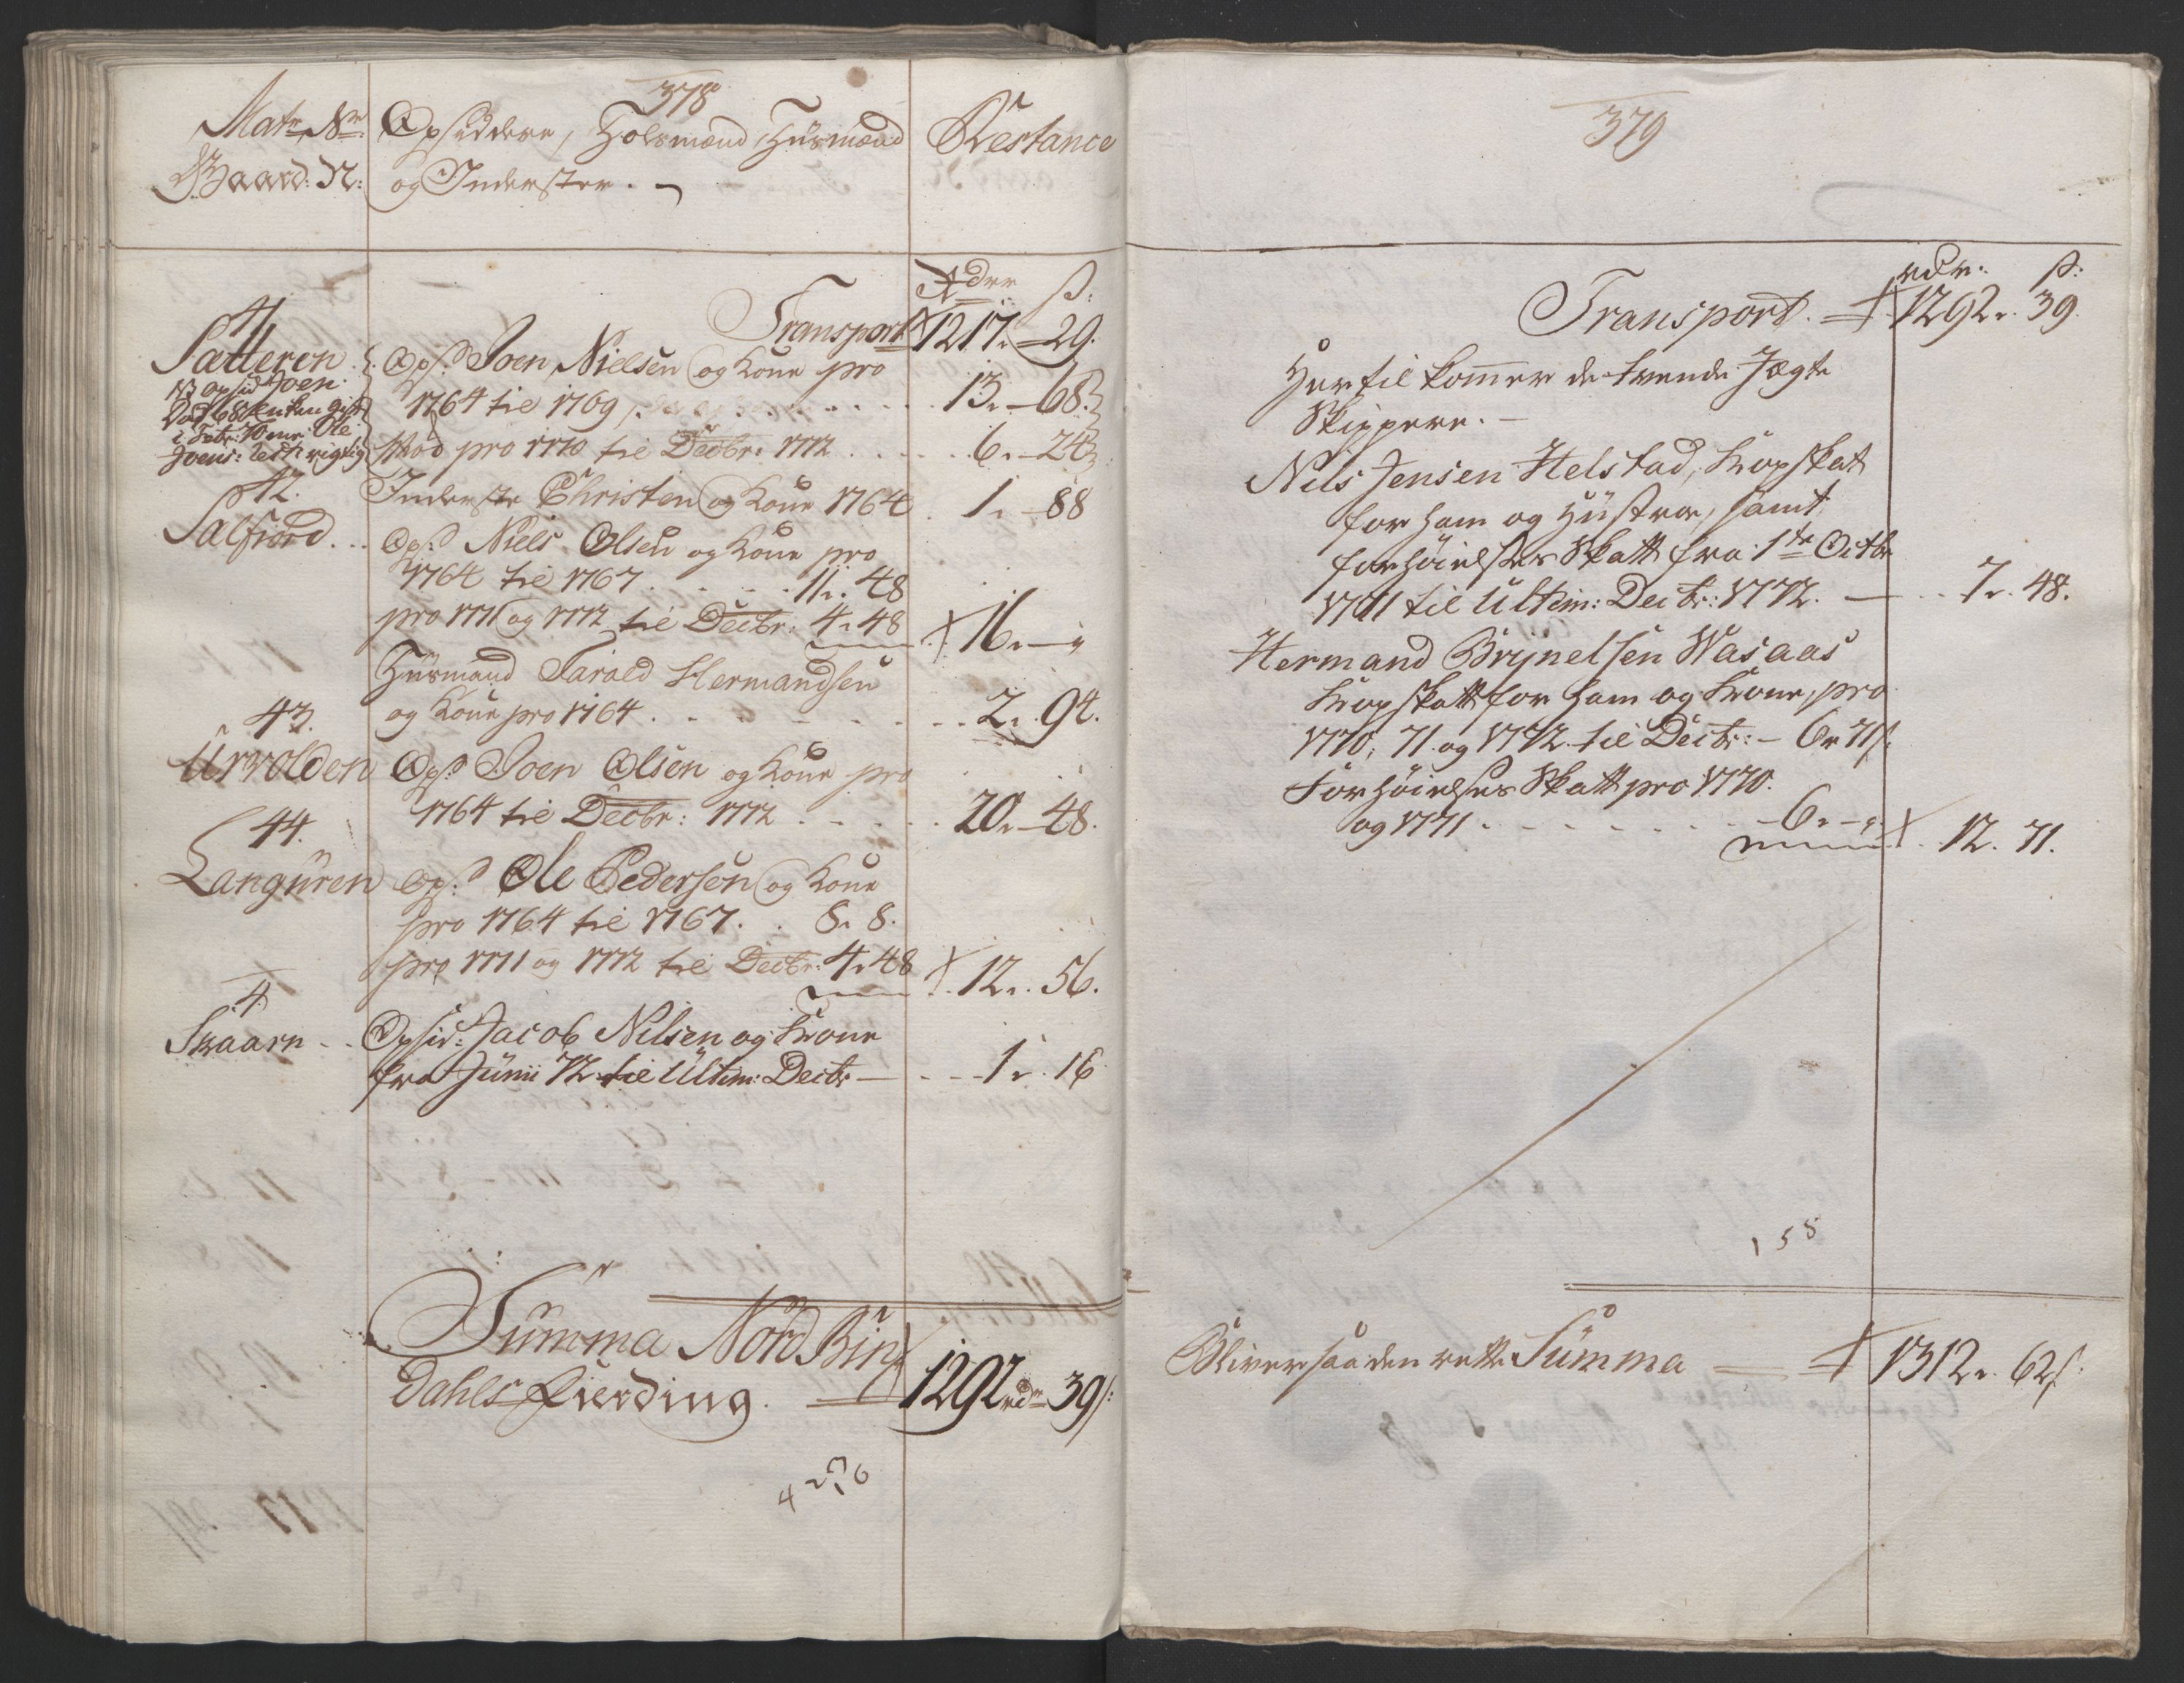 378
Matr: Nr: Opsiddere, Holsmænd Huusmænd Restance
Gaard: N: og Inderster.
Rdr ß:
Transport 1217. 29.
41
Satteren Ops: Joen Nielsen og Kone pro
1764 til 1769 13. 68.
NB opsid: Joen
Død 68 Enken gift
i Febr: 70 m: Ole
Joens: ledt rigtig
Mod pro 1770 til Decbr: 1772 6. 24
42. Inderste Christen og Kone 1764 1. 88
Salfiord Ops: Niels Olsen og Kone pro
1764 til 1767 11. 48
pro 1771 og 1772 til Decbr: 4. 48 16. –
Huusmand Tarald Hermandsen
og Kone pro 1764 2. 94.
43.
Urvolden Ops: Joen Olsen og Kone pro
1764 til Decbr: 1772 20. 48.
44.
Languren Ops: Ole Pedersen og Kone
pro 1764 til 1767. 8. 8.
pro 1771 og 1772 til Decbr: 4. 48 12. 56.
4
Skaarn Opsid: Jacob Nilsen og Kone
fra Junii 72 til Ultim: Decbr 1. 16
Summa Nord Bin
Dahls Fierding. 1292 rdr 39 ß:
379
rdr: ß:
Transport. 1292. 39.
Hertil kommer de tvende Jægte
Skippere.
Nils Jensen Helstad, Kopskat
for ham og Hustroe, samt
forhøielses Skatt fra 1te Octbr
1771 til Ultim: Decbr: 1772. 7. 48.
Hermand Brynelsen Wasaas
Kopskatt for ham og Kone, pro
1770, 71 og 1772 til Decbr: – 6 r 71 ß:
Forhøielses Skatt pro 1770.
og 1771 6. – 12. 71.
155
Bliver saa den rette Summa 1312. 62 ß: